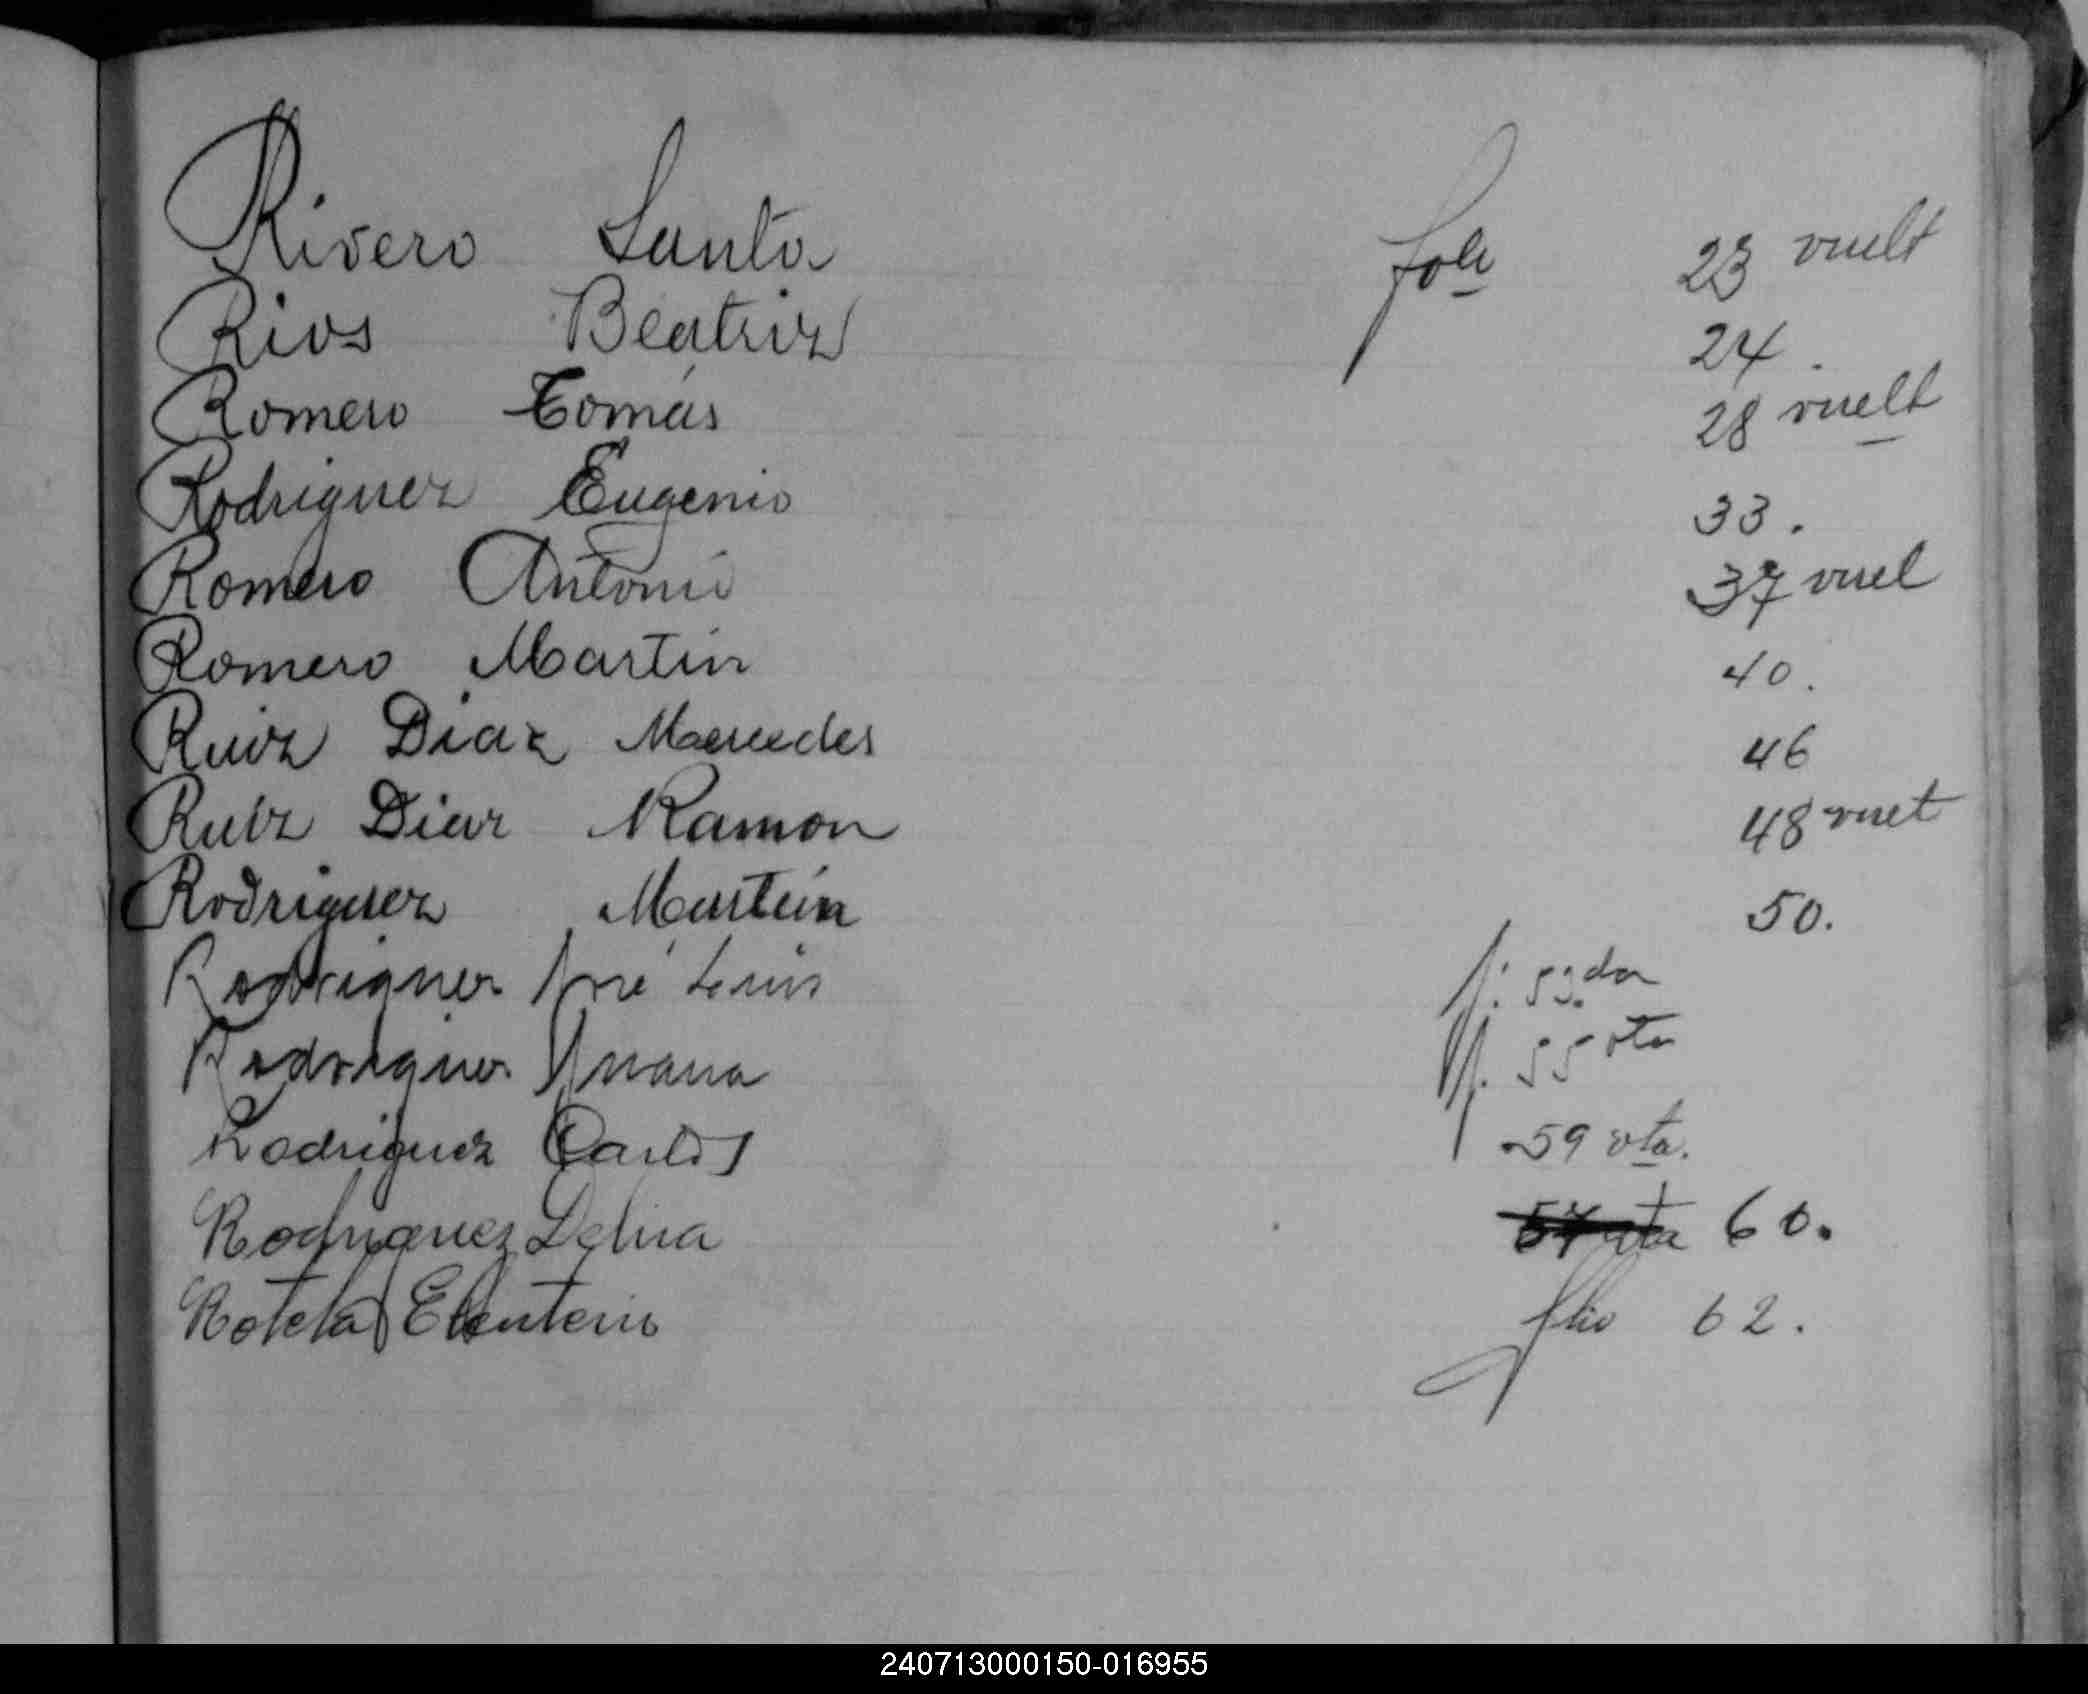 Rivero Santo folº 23 vuelt
Rios Beatriz 24.
Romero Tomás 28 vuelt
Rodriguez Eugenio 33.
Romero Antoni 37 vuel
Romero Martin 40.
Ruiz Diaz Mercedes 46
Ruiz Diaz Ramon 48 vuet
Rodriguez Martin 50.
Rodriguez José Luis f. 53
Rodriguez Juana f. 55 vta
Rodriguez Carlos 59 vta.
Rodriguez Delina 57 vta 60.
Rotela Eleuterio folio 62.
240713000150-016955